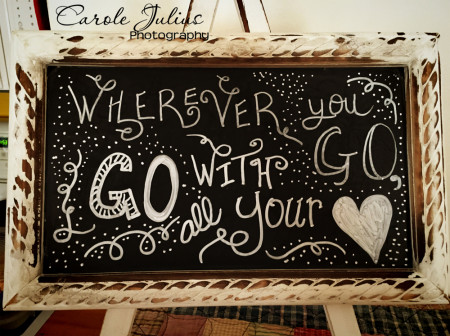 Carole Julius
Photography
WHEREVER you
GO,
GO WITH
all your